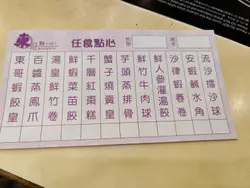 東
點一心
任食點心
流沙擂沙球
安蝦鹹水角
沙律蝦春卷
鮮人參灌湯餃
鮮竹牛肉球
芋頭蒸排骨
蟹子燒賣皇
千層紅棗糕
鮮蝦菜苗餃
湯皇鮮竹卷
百醬蒸鳳爪
東哥蝦餃皇